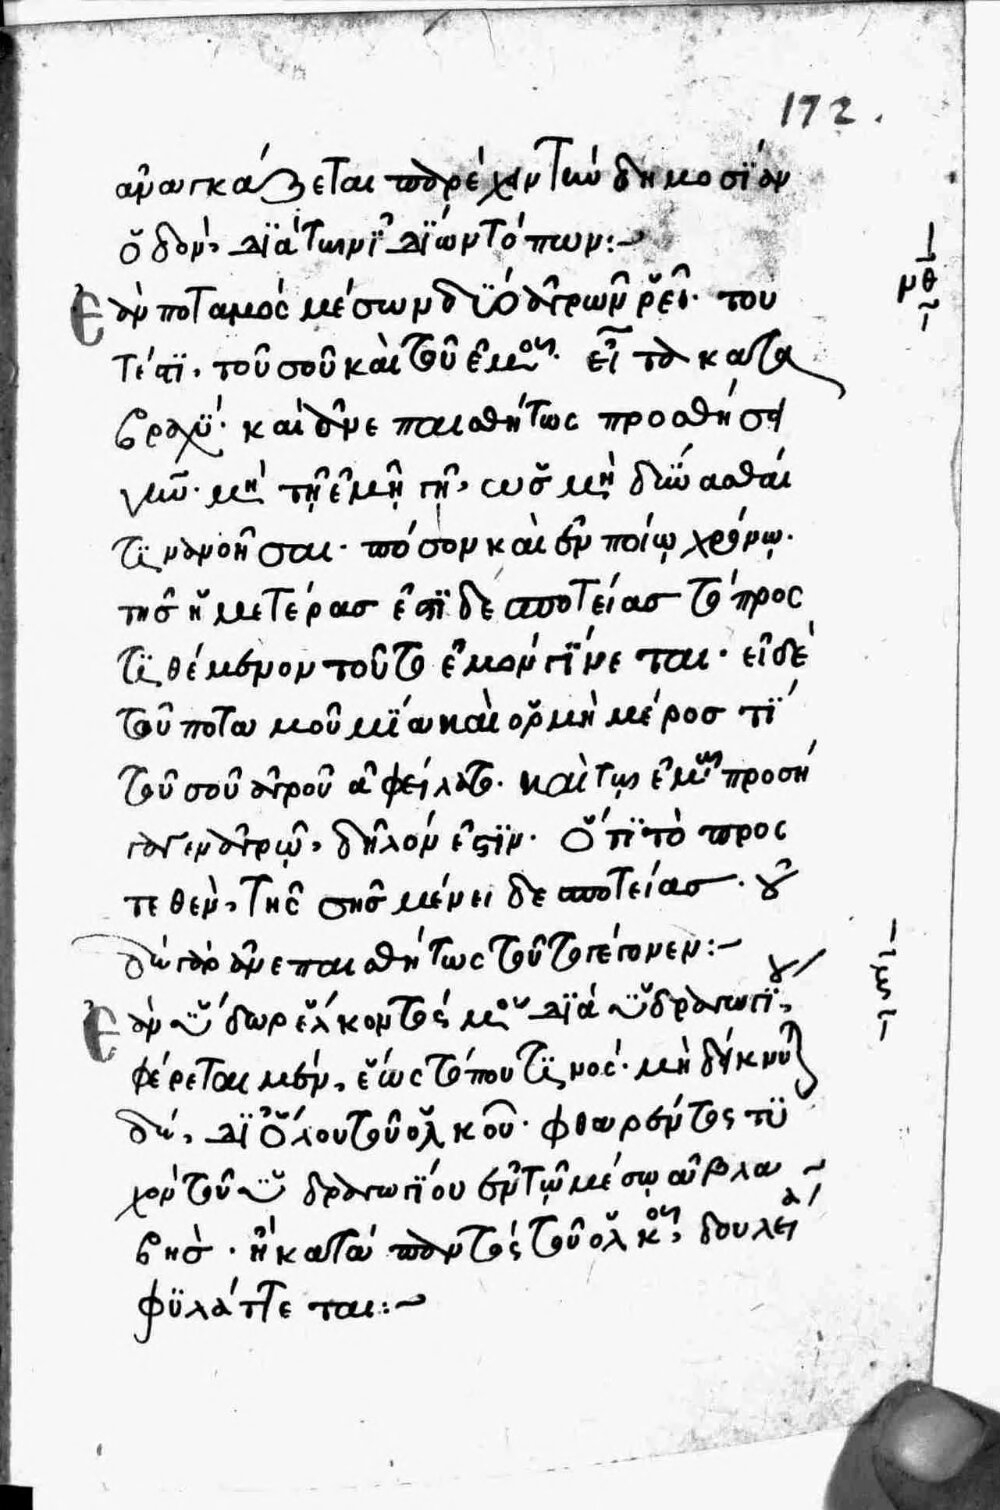 172.
ἀναγκάζεται παρέχειν τὴν δημοσίαν
ὁδὸν, διὰ τῶν ἰδίων τόπων:~
μθ
Ἐὰν ποταμὸς μέσων δύο ἀγρῶν ῥέει· του
τέστι, τοῦ σοῦ καὶ τοῦ ἐμοῦ· εἶτα κατα
βραχὺ· καὶ ἀνεπαισθήτως προσθήσει
μὲν τῇ ἐμῇ γῇ, ὡς μὴ δύνασθαί
τινα νοῆσαι· πόσον καὶ ἐν ποίῳ χρόνῳ·
τῆς ἡμετέρας ἐστὶ δεσποτείας τὸ προσ
τιθέμενον τοῦτο ἐμὸν γίνεται· εἰ δὲ
τοῦ ποταμοῦ μία καὶ ὁρμὴ μέρος τι
τοῦ σοῦ ἀγροῦ ἀφείλατο· καὶ τῷ ἐμῷ προσή
γαγεν ἀγρῷ, δῆλόν ἐστιν· ὅτι τὸ προσ
τεθὲν, τῆς σῆς μένει δεσποτείας· οὐ
δὲ γὰρ ἀνεπαισθήτως τοῦτο γέγονεν:~
ξ
Ἐὰν ὕδωρ ἕλκοντός μου διὰ ὑδραγωγίου,
φέρεται μὲν, ἕως τόπου τινός· μὴ δείκνυ
δὲ, δι' ὅλου τοῦ ὁλκοῦ· φθαρέντος τυ
χὸν τοῦ ὑδραγωγίου ἐν τῷ μέσῳ ἀβλα
βὴς· ἡ κατὰ παντός τοῦ ὁλκοῦ, δουλεία
φυλάττεται:~